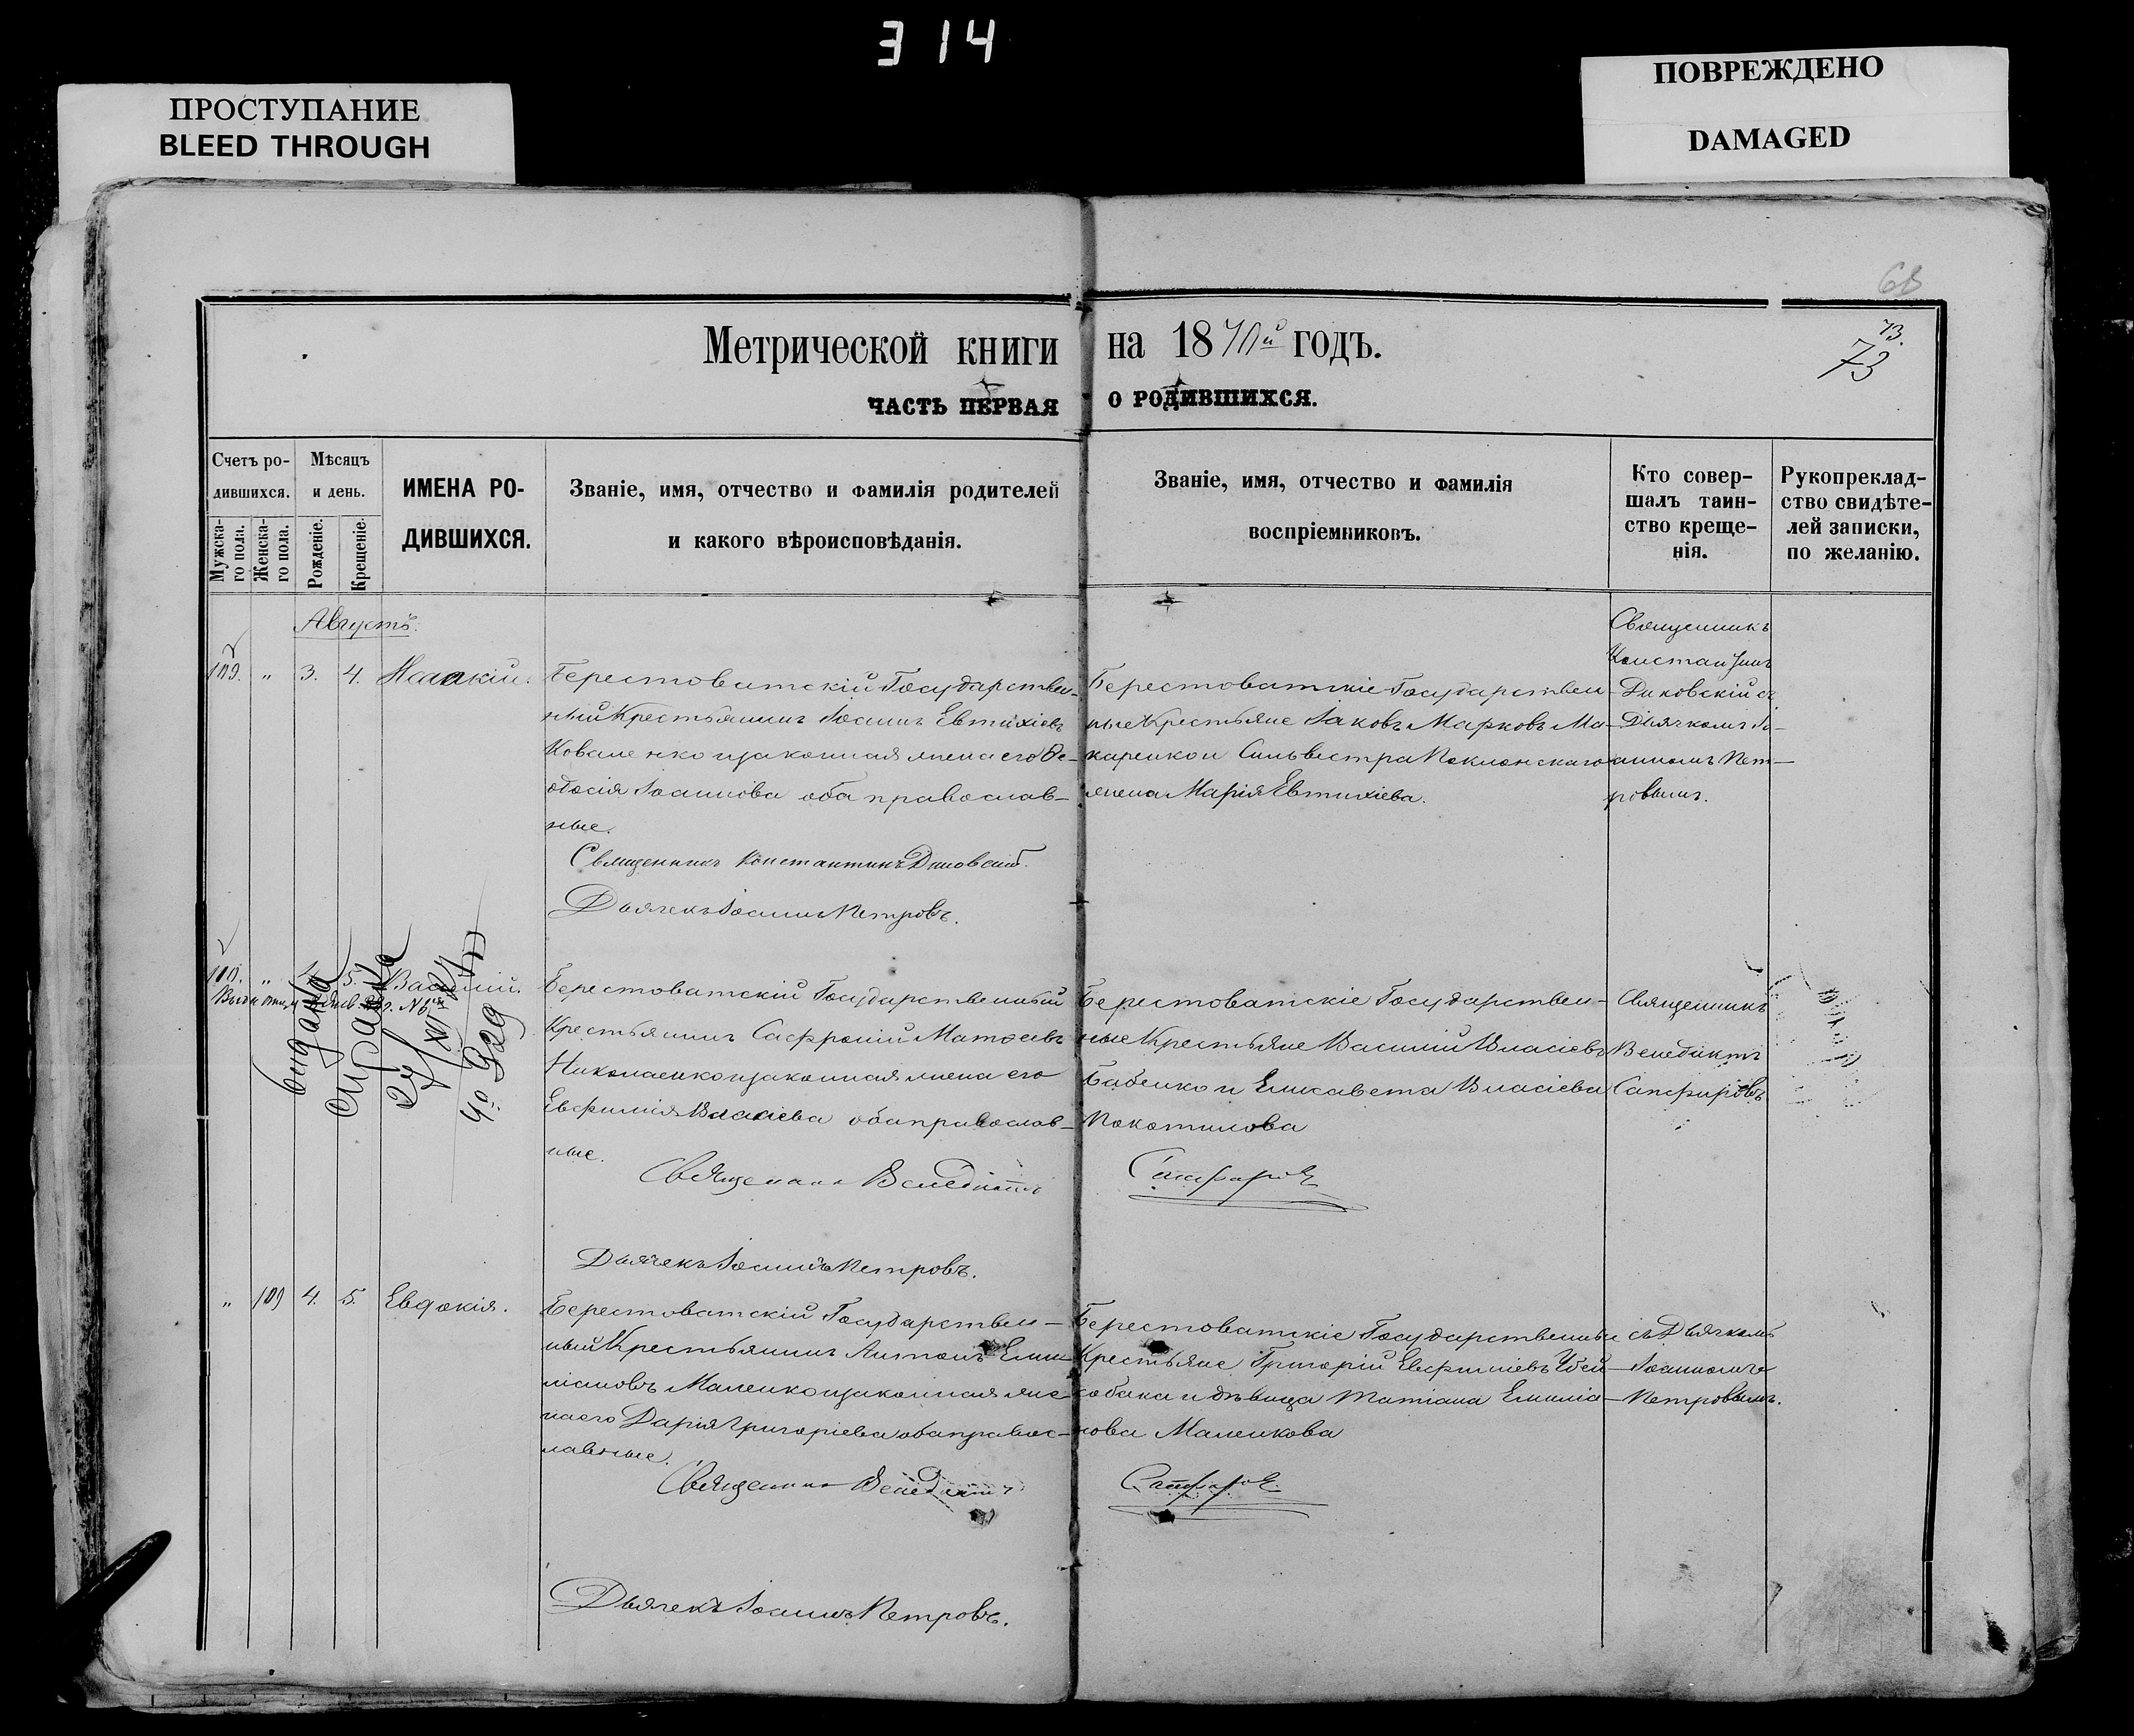 314
ПРОСТУПАНИЕ
BLEED THROUGH
ПОВРЕЖДЕНО
DAMAGED
68
Метрической книги на 1870й годъ.
73.
73
ЧАСТЬ ПЕРВАЯ О РОДИВШИХСЯ.
Счетъ ро-
дившихся.
Мужска-
го пола.
Женска-
го пола.
Мѣсяцъ
и день.
Рожденіе.
Крещеніе.
ИМЕНА РО-
ДИВШИХСЯ.
Званіе, имя, отчество и фамилія родителей
и какого вѣроисповѣданія.
Званіе, имя, отчество и фамилія
воспріемниковъ.
Кто совер-
шалъ таин-
ство креще-
нія.
Рукоприклад-
ство свидѣте-
лей записки,
по желанію.
Августъ.
109. " 3. 4. Исаакій.
Берестоватскій Государствен-
ный Крестьянинъ Іоаннъ Евтихіевъ
Коваленко и законная жена его Ѳе-
одосія Іоаннова оба православ-
ные.
Священникъ Константинъ Диковскій.
Дьячекъ Іоаннъ Петровъ.
Берестоватскіе Государствен-
ные Крестьяне Іаковъ Марковъ Ма-
каренко и Сильвестра Поклонскаго
жена Марія Евтихіева.
Священникъ
Константинъ
Диковскій съ
Дьячкомъ Іо-
анномъ Пет-
ровымъ.
110. " 5. Василій.
выдана
справка
27/XII
№ 929
Берестоватскій Государственный
Крестьянинъ Сафроній Матѳеевъ
Николаенко и законная жена его
Евфимія Власіева оба православ-
ные.
Священникъ Венедиктъ Сапфировъ
Дьячекъ Іоаннъ Петровъ.
Берестоватскіе Государствен-
ные Крестьяне Василій Власіевъ
Бабенко и Елисавета Власіева
Покотилова
Священникъ
Венедиктъ
Сапфировъ
" 109 4. 5. Евдокія.
Берестоватскій Государствен-
ный Крестьянинъ Антонъ Еми-
ліановъ Маленко и законная же-
на его Дарія Григоріева оба правос-
лавные.
Священникъ Венедиктъ Сапфировъ
Дьячекъ Іоаннъ Петровъ.
Берестоватскіе Государственные
Крестьяне Григорій Евфиміевъ Убей-
кобака и дѣвица Татіана Емиліа-
нова Маленкова
съ Дьячкомъ
Іоанномъ
Петровымъ.